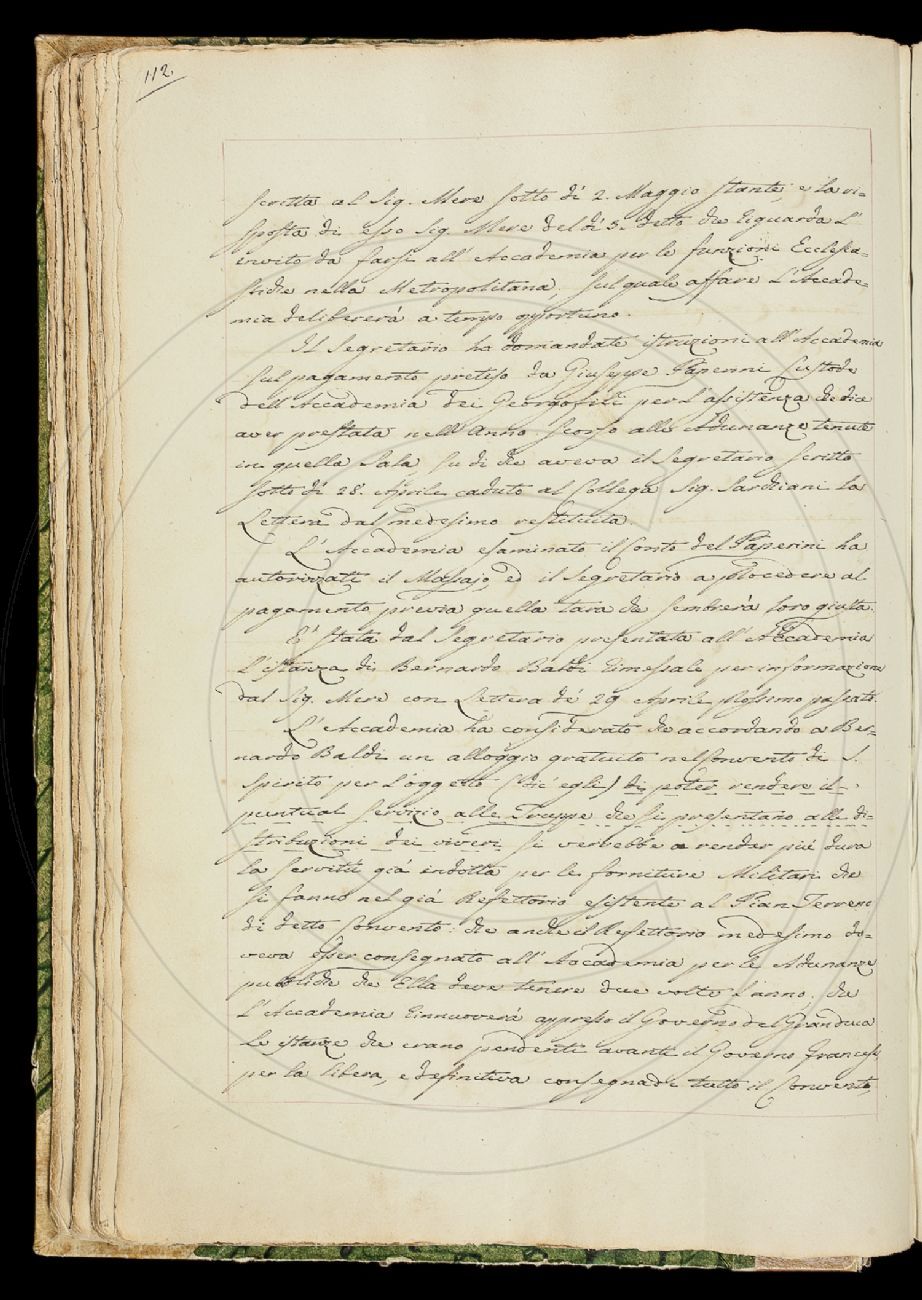 112.
scritta al Sig. Mere sotto dì 2. Maggio stante, e la ri=
sposta di esso Sig. Mere del dì 5. detto che riguarda l'
invito da farsi all'Accademia per le funzioni Ecclesia=
stiche nella Metropolitana, sul quale affare l'Accade=
mia delibererà a tempo opportuno.
Il Segretario ha domandate istruzioni all'Accademia
sul pagamento preteso da Giuseppe Paperini Custode
dell'Accademia dei Georgofili per l'assistenza che dice
aver prestata nell'Anno scorso alle Adunanze tenute
in quella Sala, su di che aveva il Segretario scritto
sotto dì 28. Aprile caduto al Collega Sig. Sarchiani la
Lettera dal medesimo restituita.
L'Accademia esaminato il Conto del Paperini ha
autorizzati il Massajo, ed il Segretario a procedere al
pagamento previa quella tara che sembrerà loro giusta.
E' stata dal Segretario presentata all'Accademia
l'istanza di Bernardo Baldi rimessale per informazione
dal Sig. Mere con Lettera de' 29 Aprile prossimo passato.
L'Accademia ha considerato che accordando a Ber=
nardo Baldi un alloggio gratuito nel Convento di S.
Spirito per l'oggetto (dic'egli) di poter rendere il
puntual servizio alle Truppe che si presentano alle di=
stribuzioni dei viveri si verrebbe a render più dura
la servitù già indotta per le forniture Militari che
si fanno nel già Refettorio esistente al Pian Terreno
di detto Convento: che anche il Refettorio medesimo do=
veva esser consegnato all'Accademia per le Adunanze
pubbliche che Ella deve tenere due volte l'anno; che
l'Accademia rinnuoverà appresso il Governo del Granduca
le istanze che erano pendenti avanti il Governo francese
per la libera, e definitiva consegna di tutto il Convento,